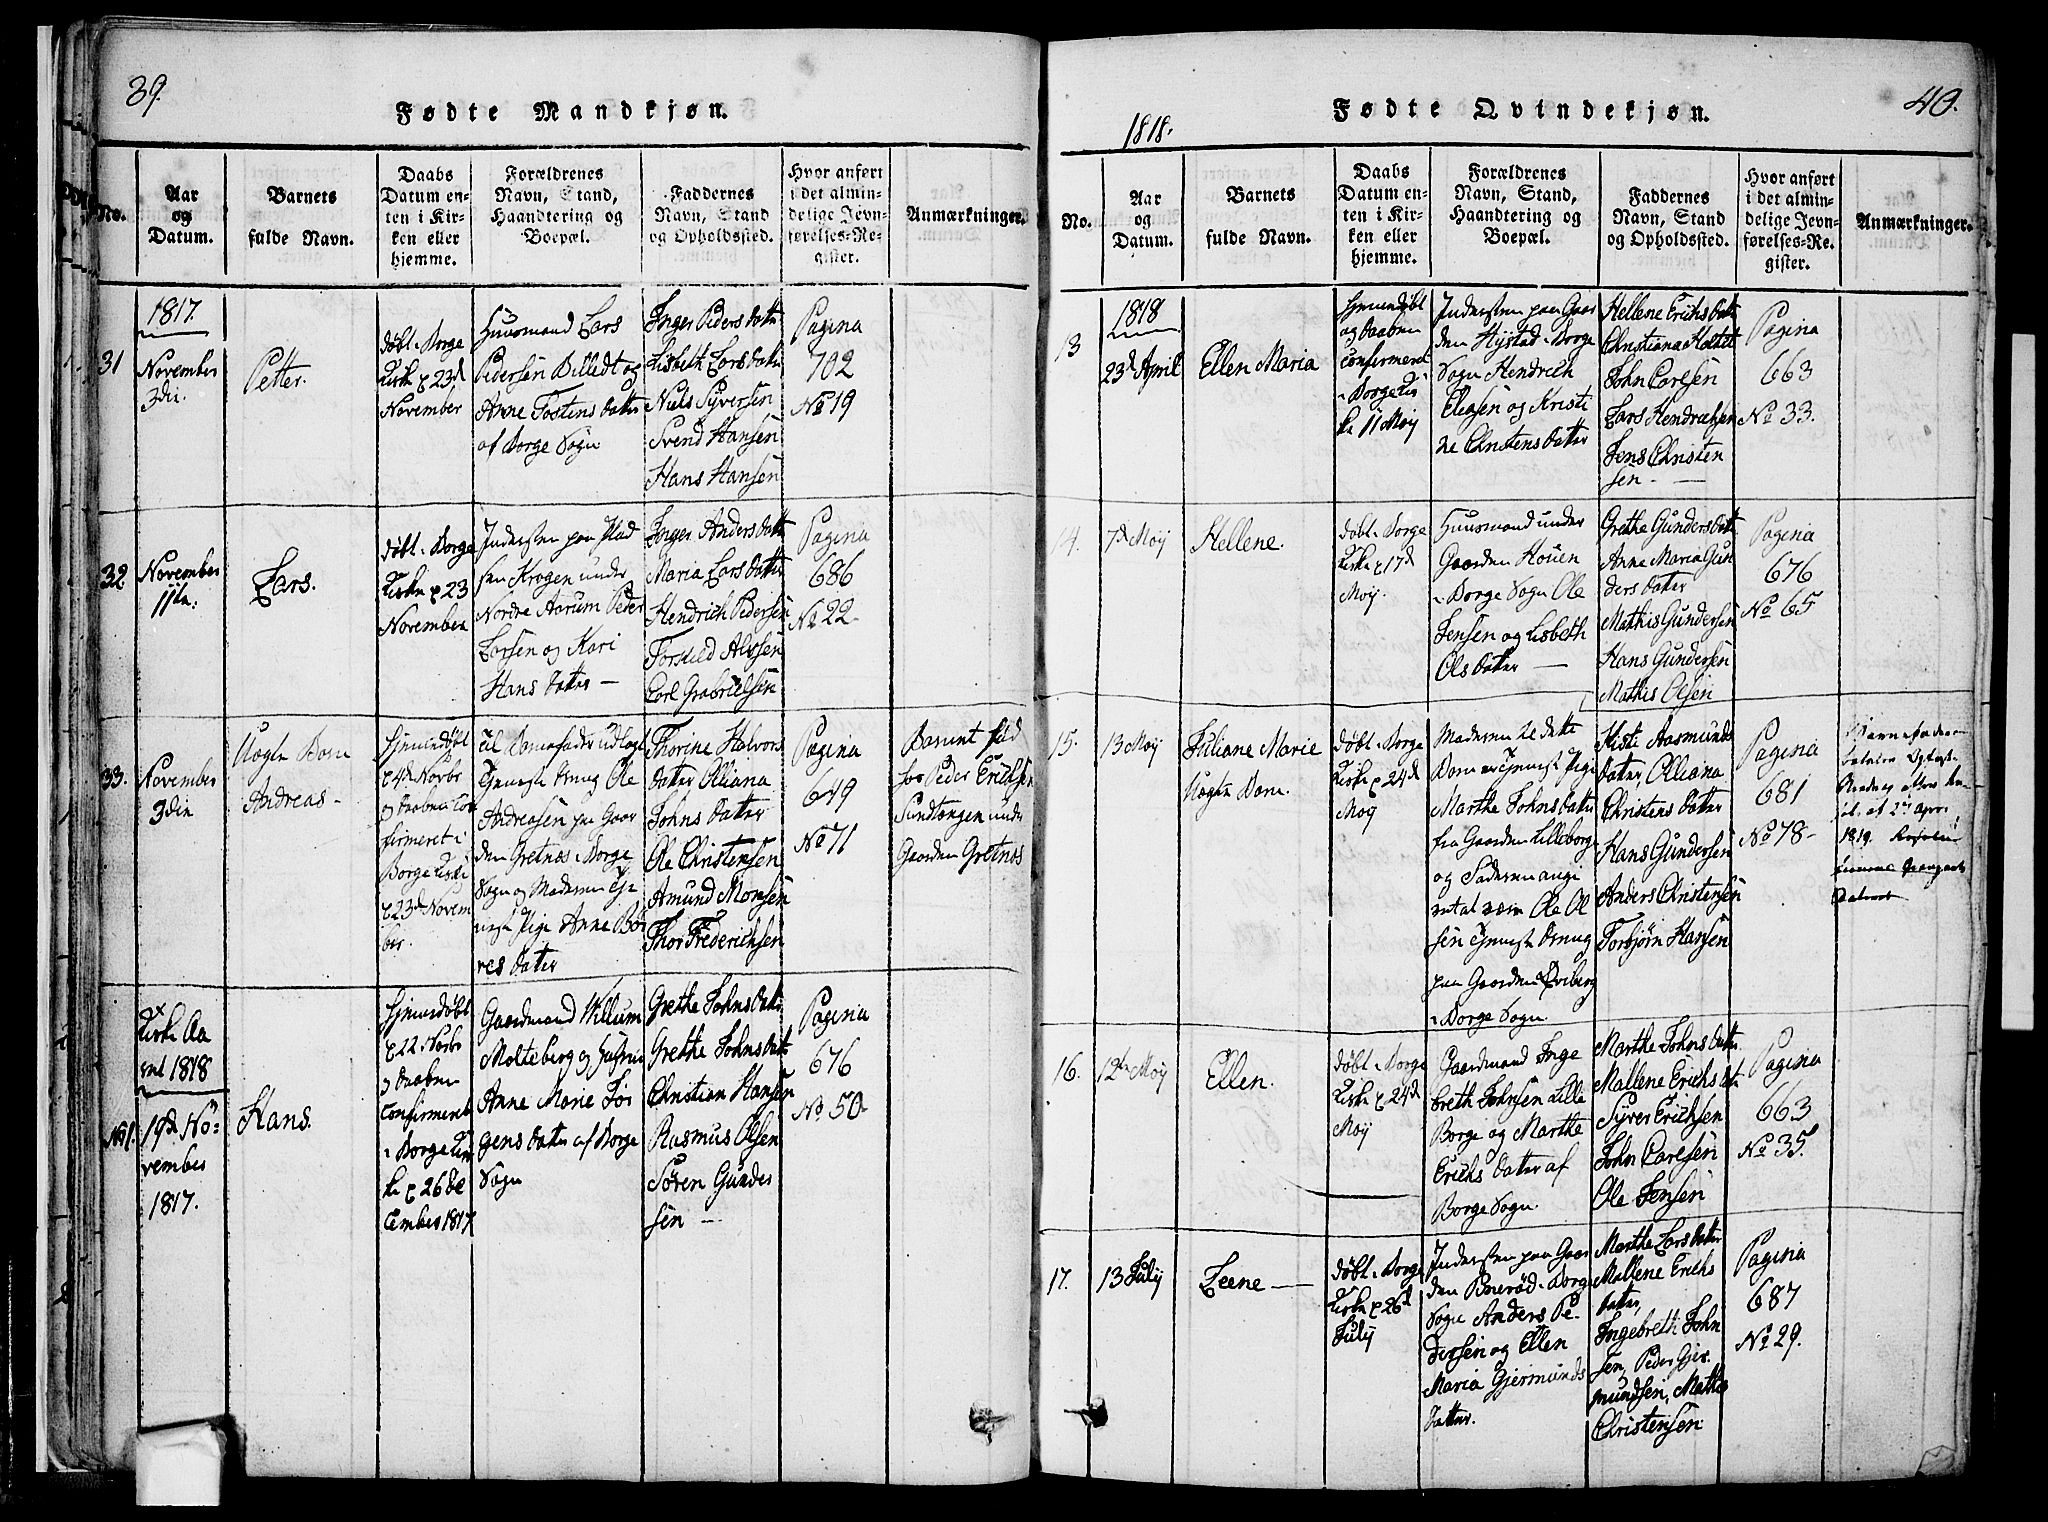 39.
Fødte Mandkjøn.
No.
Aar
og
Datum.
Barnets
fulde Navn.
Daabs
Datum en-
ten i Kir-
ken eller
hjemme.
Forældrenes
Navn, Stand,
Haandtering og
Boepæl.
Faddernes
Navn, Stand
og Opholdssted.
Hvor anført
i det almin-
delige Jevn-
førelses-Re-
gister.
Anmærkninger.
1817.
31
November
3die.
Petter.
døbt i Borge
Kirke d 23d
November
Huusmand Lars
Pedersen Billedt og
Anne Tostens datter
af Borge Sogn
Inger Peders datter
Lisbeth Lars datter
Niels Syversen
Svend Hansen
Hans Hansen
Pagina
702
No 19
32
November
11te.
Lars.
døbt i Borge
Kirke d 23
November
Indersten paa Plad
sen Krogen under
Nordre Aarum Peder
Larsen og Kari
Hans datter —
Inger Anders datter
Maria Lars datter
Hendrich Pedersen
Torskild Alvsen
Carl Gabrielsen
Pagina
686
No 22-
33.
November
3die
Uægte Barn
Andreas -
Hjemmedøbt
d 4de Novbr
og daaben Con
firmeret i
Borge Kirke
d 23d Novem
ber.
til Barnefader udlagt
Ole
Andreasen paa Gaar
den Gretnæs i Borge
Sogn og Moderen
Pige Anne Bør
res datter
Thorine Halvors
datter Olliana
Johns datter
Ole Christensen
Amund Monsen
Thor Frederichsen
Pagina
649
No 71
Barnet fød
hos Peder Erichsen
Sundløngen under
Gaarden Gretnæs
Kirke Aa
ret 1818
No 1.
19de No-
vember
1817.
Hans.
Hjemmedøbt
d 22 Novbr
og daaben
Confirmeret
i Borge Kir
ke d 26 De
cember 1817
Gaardmand Willum
Molteberg og Hustrue
Anne Marie Jør
gens datter af Borge
Sogn
Grethe Johns datter
Grethe Johns datter
Christian Hansen
Rasmus Olsen
Søren Gunder
sen —
Pagina
676
No 50-
40.
Fødte Qvindekjøn.
1818.
No.
Aar
og
Datum.
Barnets
fulde Navn.
Daabs
Datum en-
ten i Kir-
ken eller
hjemme.
Forældrenes
Navn, Stand,
Haandtering og
Boepæl.
Faddernes
Navn, Stand
og Opholdssted.
Hvor anført
i det almin-
delige Jevn-
førelses-Re-
gister.
Anmærkninger.
1818
13
23de April
Ellen Maria
Hjemmedøbt
og daaben
confirmeret
i Borge Kir
ke 11 Moij
Indersten paa Gaar
den Hystad i Borge
Sogn Hendrich
Eliasen og Kristi
ne Christens datter
Hellene Erichs datter
Christiana Holtet
John Carlsen
Lars Hendrichsen
Jens Christen
sen. —
Pagina
663
No 33.
14.
7de Moij
Hellene.
døbt i Borge
Kirke d 17d
Moij.
Huusmand under
Gaarden Houen
i Borge Sogn Ole
Jensen og Lisbeth
Ols datter —
Grethe Gunders datter
Anne Maria Gun
ders datter
Mathis Gundersen
Hans Gundersen
Mathis Olsen
Pagina
676
No 65
15.
13 Moij
Juliane Marie
Uægte Barn.
døbt i Borge
Kirke d 24d
Moij
Moderen til dette
Barn er Pige
Marthe Johns datter
fra Gaarden Lilleborge
og Faderen angi
vet at være Ole Ol
sen
paa Gaarden Qviberg
i Borge Sogn.
Kisti Aasmunds
datter, Olliana
Christens datter
Hans Gundersen
Anders Christensen
Torbjørn Hansen
Pagina
681
No 78-
Barnefaderen
af 2den April
1819.
16.
12te Moij
Ellen.
døbt i Borge
Kirke d 24d
Moij
Gaardmand Inge
breth Johnsen Lille
Borge og Marthe
Erichs datter af
Borge Sogn.
Marthe Johns datter
Mallene Erichs dtr
Syver Erichsen
John Carlsen
Ole Jensen
Pagina
663
No 35.
17.
13 Julij
Leene —
døbt i Borge
Kirke d 26d
Julij
Indersten paa Gaar
den Bnerød i Borge
Sogn Anders Pe
dersen og Ellen
Maria Gjermunds
datter.
Marthe Lars datter
Mallene Erichs
datter,
Ingebreth John
sen, Peder Gjer
mundsen, Mathis
Christensen
Pagina
687
No 29.